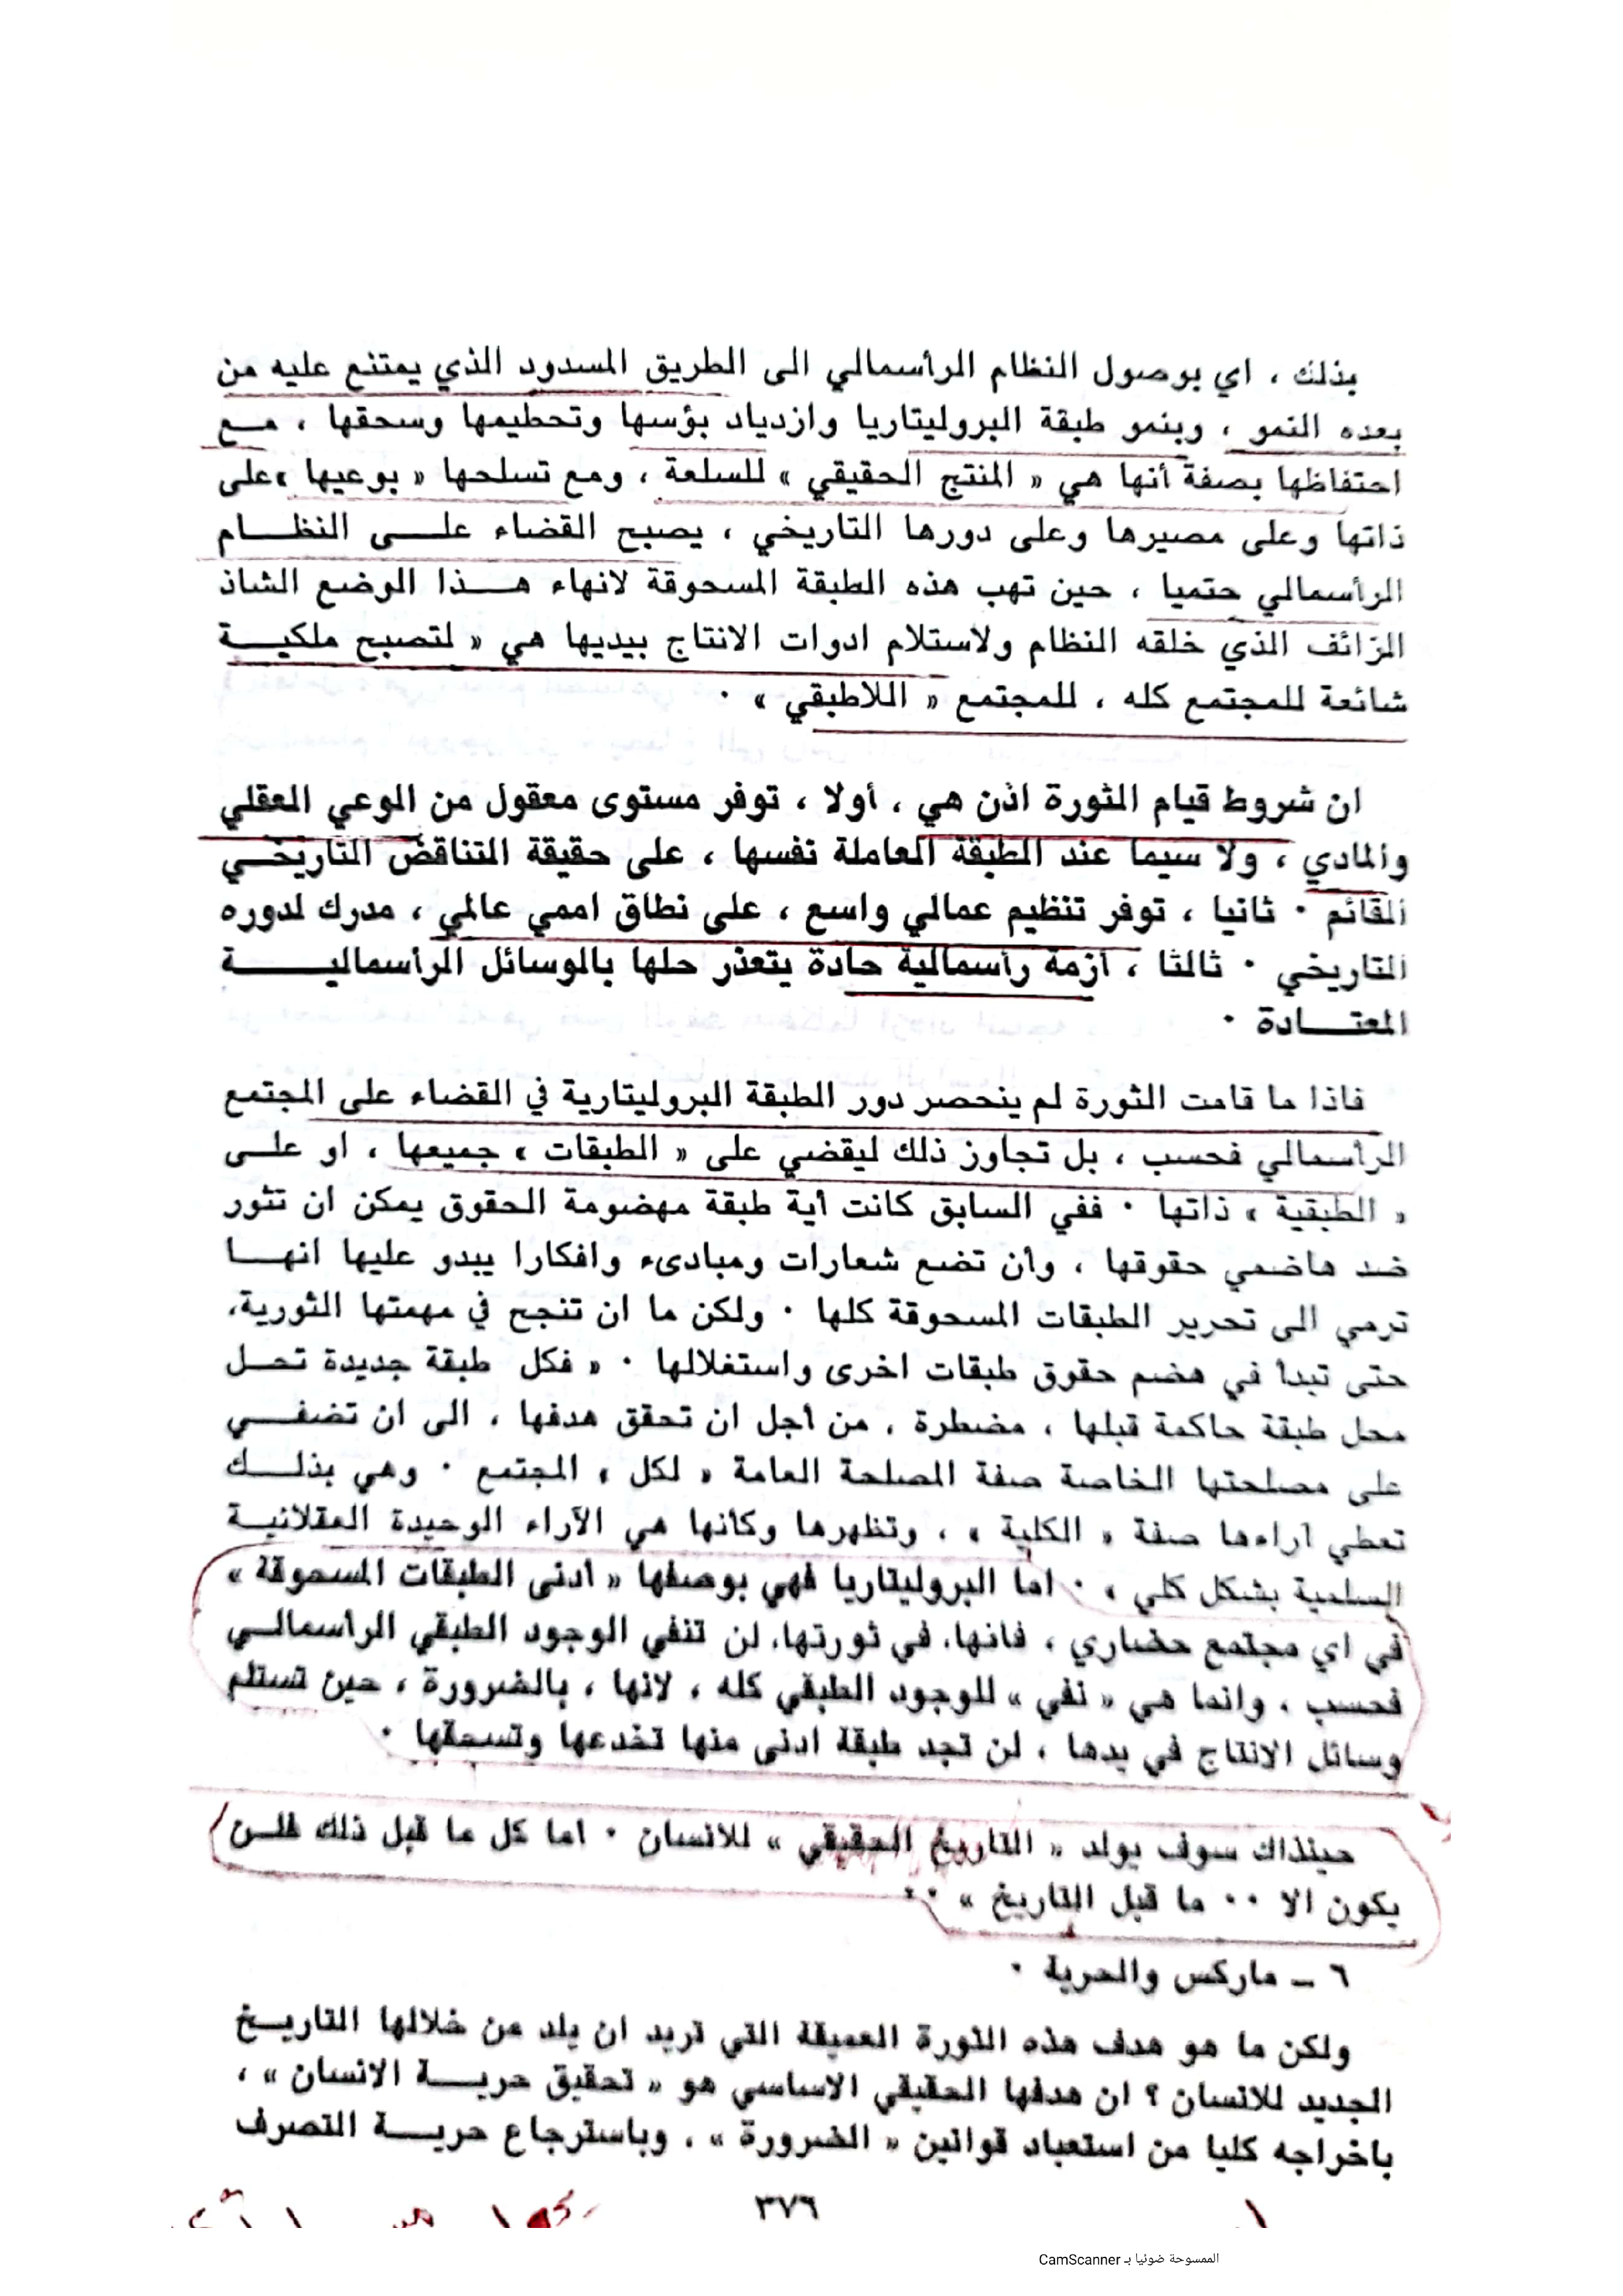 بذلك ، اي بوصول النظام الرأسمالي الى الطريق المسدود الذي يمتنع عليه من
بعده النمو ، وبنمو طبقة البروليتاريا وازدياد بؤسها وتحطيمها وسحقها ، مع
احتفاظها بصفة أنها هي « المنتج الحقيقي » للسلعة ، ومع تسلحها « بوعيها »على
ذاتها وعلى مصيرها وعلى دورها التاريخي ، يصبح القضاء على النظام
الرأسمالي حتميا ، حين تهب هذه الطبقة المسحوقة لانهاء هذا الوضع الشاذ
الزائف الذي خلقه النظام ولاستلام ادوات الانتاج بيديها هي « لتصبح ملكية
شائعة للمجتمع كله ، للمجتمع « اللاطبقي » .
ان شروط قيام الثورة اذن هي ، أولا ، توفر مستوى معقول من الوعي العقلي
والمادي ، ولا سيما عند الطبقة العاملة نفسها ، على حقيقة التناقض التاريخي
القائم . ثانيا ، توفر تنظيم عمالي واسع ، على نطاق اممي عالمي ، مدرك لدوره
التاريخي . ثالثا ، أزمة رأسمالية حادة يتعذر حلها بالوسائل الرأسمالية
المعتادة .
فاذا ما قامت الثورة لم ينحصر دور الطبقة البروليتارية في القضاء على المجتمع
الرأسمالي فحسب ، بل تجاوز ذلك ليقضي على « الطبقات » جميعها ، او على
« الطبقية » ذاتها . ففي السابق كانت أية طبقة مهضومة الحقوق يمكن ان تثور
ضد هاضمي حقوقها ، وأن تضع شعارات ومبادىء وافكارا يبدو عليها انها
ترمي الى تحرير الطبقات المسحوقة كلها . ولكن ما ان تنجح في مهمتها الثورية،
حتى تبدأ في هضم حقوق طبقات اخرى واستغلالها . « فكل طبقة جديدة تحل
محل طبقة حاكمة قبلها ، مضطرة ، من أجل ان تحقق هدفها ، الى ان تضفي
على مصلحتها الخاصة صفة المصلحة العامة « لكل » المجتمع . وهي بذلك
تعطي آراءها صفة « الكلية » ، وتظهرها وكأنها هي الآراء الوحيدة العقلانية
السلمية بشكل كلي » . اما البروليتاريا فهي بوصفها « أدنى الطبقات المسحوقة »
في اي مجتمع حضاري ، فانها، في ثورتها، لن تنفي الوجود الطبقي الرأسمالي
فحسب ، وانما هي « نفي » للوجود الطبقي كله ، لانها ، بالضرورة ، حين تستلم
وسائل الانتاج في يدها ، لن تجد طبقة ادنى منها تخدعها وتسحقها .
حينذاك سوف يولد « التاريخ الحقيقي » للانسان . اما كل ما قبل ذلك فلن
يكون الا .. ما قبل التاريخ » ..
٦ ــ ماركس والحرية .
ولكن ما هو هدف هذه الثورة العميقة التي تريد ان يلد من خلالها التاريخ
الجديد للانسان ؟ ان هدفها الحقيقي الاساسي هو « تحقيق حرية الانسان » ،
باخراجه كليا من استعباد قوانين « الضرورة » ، وباسترجاع حرية التصرف
٣٧٦
الممسوحة ضوئيا بـ CamScanner